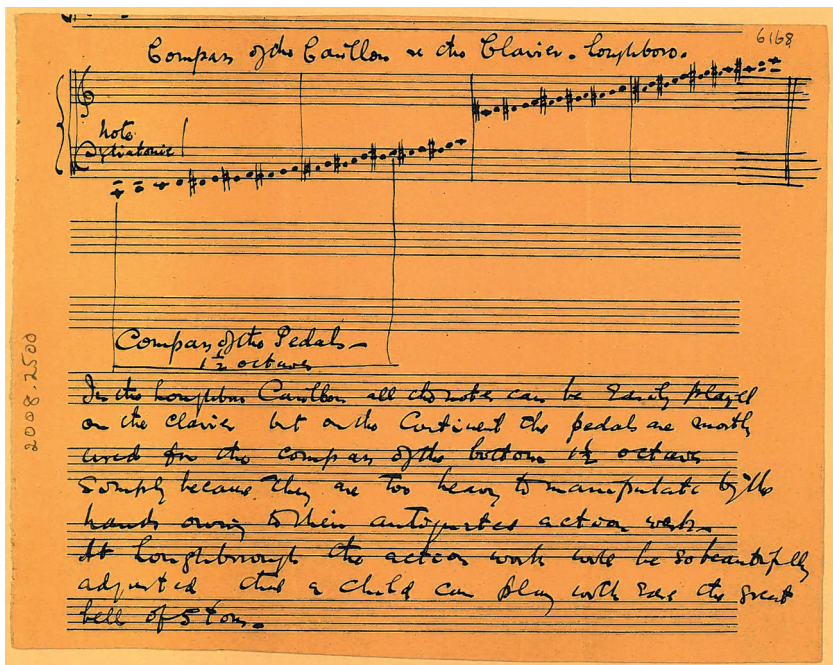 6168
Compass of the Carillon on the Clavier. Loughboro.
note
diatonic
Compass of the Pedals –
1½ octaves
2008.2500
In the Loughboro Carillon all the notes can be easily played
on the clavier but on the Continent the pedals are mostly
used for the compass of the bottom 1½ octaves
simply because they are too heavy to manipulate by the
hands owing to their antiquated action work –
At Loughborough the action work will be so beautifully
adjusted that a child can play with ease the great
bell of 5 tons. –